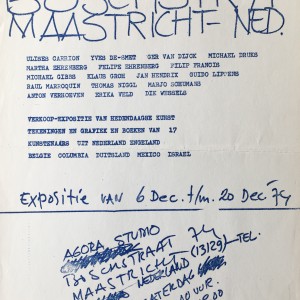 MAASTRICHT- NED.
ULISES CARRION YVES DE-SMET GER VAN DIJCK MICHAEL DRUKS
MARTHA EHRENBERG FELIPE EHRENBERG FILIP FRANCIS
MICHAEL GIBBS KLAUS GROH JAN HENDRIX GUIDO LIPPENS
RAUL MARROQUIN THOMAS NIGGL MARJO SCHUMANS
ANTON VERHOEVEN ERIKA VELD DIK WESSELS
VERKOOP-EXPOSITIE VAN HEDENDAAGSE KUNST
TEKENINGEN EN GRAFIEK EN BOEKEN VAN 17
KUNSTENAARS UIT NEDERLAND ENGELAND
BELGIE COLUMBIA DUITSLAND MEXICO ISRAEL
EXPOSITIE VAN 6 DEC. T/M. 20 DEC '74
AGORA STUDIO
BOSCHSTRAAT 74
MAASTRICHT (13/29)-TEL.
NEDERLAND
ZATERDAG
UUR.